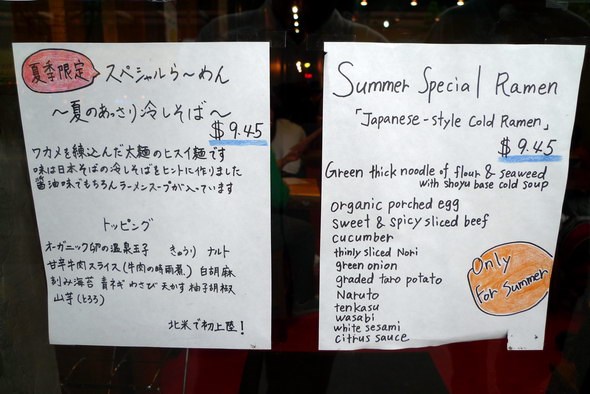 夏季限定
スペシャルら〜めん
〜夏のあっさり冷しそば〜
$9.45
ワカメを練込んだ太麺のヒスイ麺です
味は日本そばの冷しそばをヒントに作りました
醤油味でもちろんラーメンスープが入っています
トッピング
オーガニック卵の温泉玉子 きゅうり ナルト
甘辛牛肉スライス(牛肉の時雨煮) 白胡麻
刻み海苔 青ネギ わさび 天かす 柚子胡椒
山芋(とろろ)
北米で初上陸!
Summer Special Ramen
「Japanese-style Cold Ramen」
$9.45
Green thick noodle of flour & seaweed
with shoyu base cold soup
organic porched egg
sweet & spicy sliced beef
cucumber
thinly sliced Nori
green onion
graded taro potato
Naruto
tenkasu
wasabi
white sesami
citrus sauce
Only
For Summer